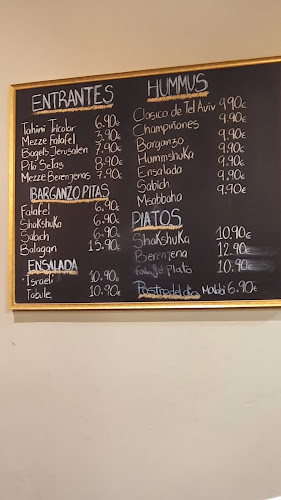 ENTRANTES
Tahini Tricolor 6.90€
Mezze Falafel 3.90€
Bagels Jerusalen 7.90€
Pita Setas 8.90€
Mezze Berenjenas 7.90€
BARGANZO PITAS
Falafel 6.90€
Shakshuka 6.90€
Sabich 6.90€
Balagan 15.90€
ENSALADA
Israeli 10.90€
Tabule 10.90€
HUMMUS
Clasico de Tel Aviv 9.90€
Champiñones 9.90€
Barganzo 9.90€
Hummshuka 9.90€
Ensalada 9.90€
Sabich 9.90€
Msabbaha
PLATOS
Shakshuka 10.90€
Berenjena 12.90€
Falafel Plato 10.90€
Postre del dia Malabi 6.90€